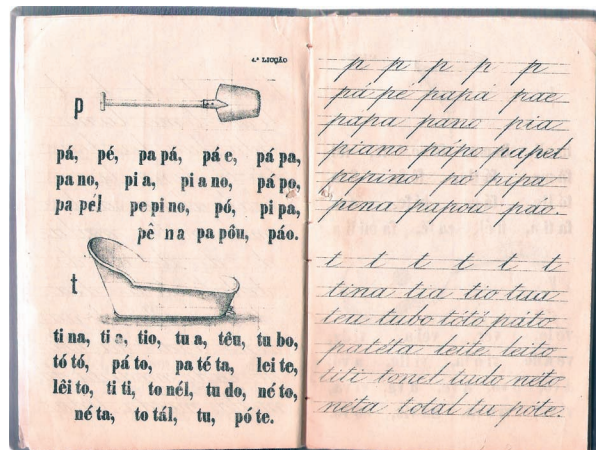 4.ª LICÇÃO
p
pá, pé, pa pá, pá e, pá pa,
pa no, pi a, pi a no, pá po,
pa pél pe pi no, pó, pi pa,
pê na pa pôu, páo.
t
ti na, ti a, tio, tu a, têu, tu bo,
tó tó, pá to, pa té ta, lei te,
lêi to, ti ti, to nél, tu do, né to,
né ta, to tál, tu, pó te.
p p p p p
pá pé papá pae
papa pano pia
piano pápo papel
pepino pó pipa
pena papou páo.
t t t t t t
tina tia tio tua
teu tubo tótó páto
patéta leite leito
titi tonel tudo néto
néta total tu póte.